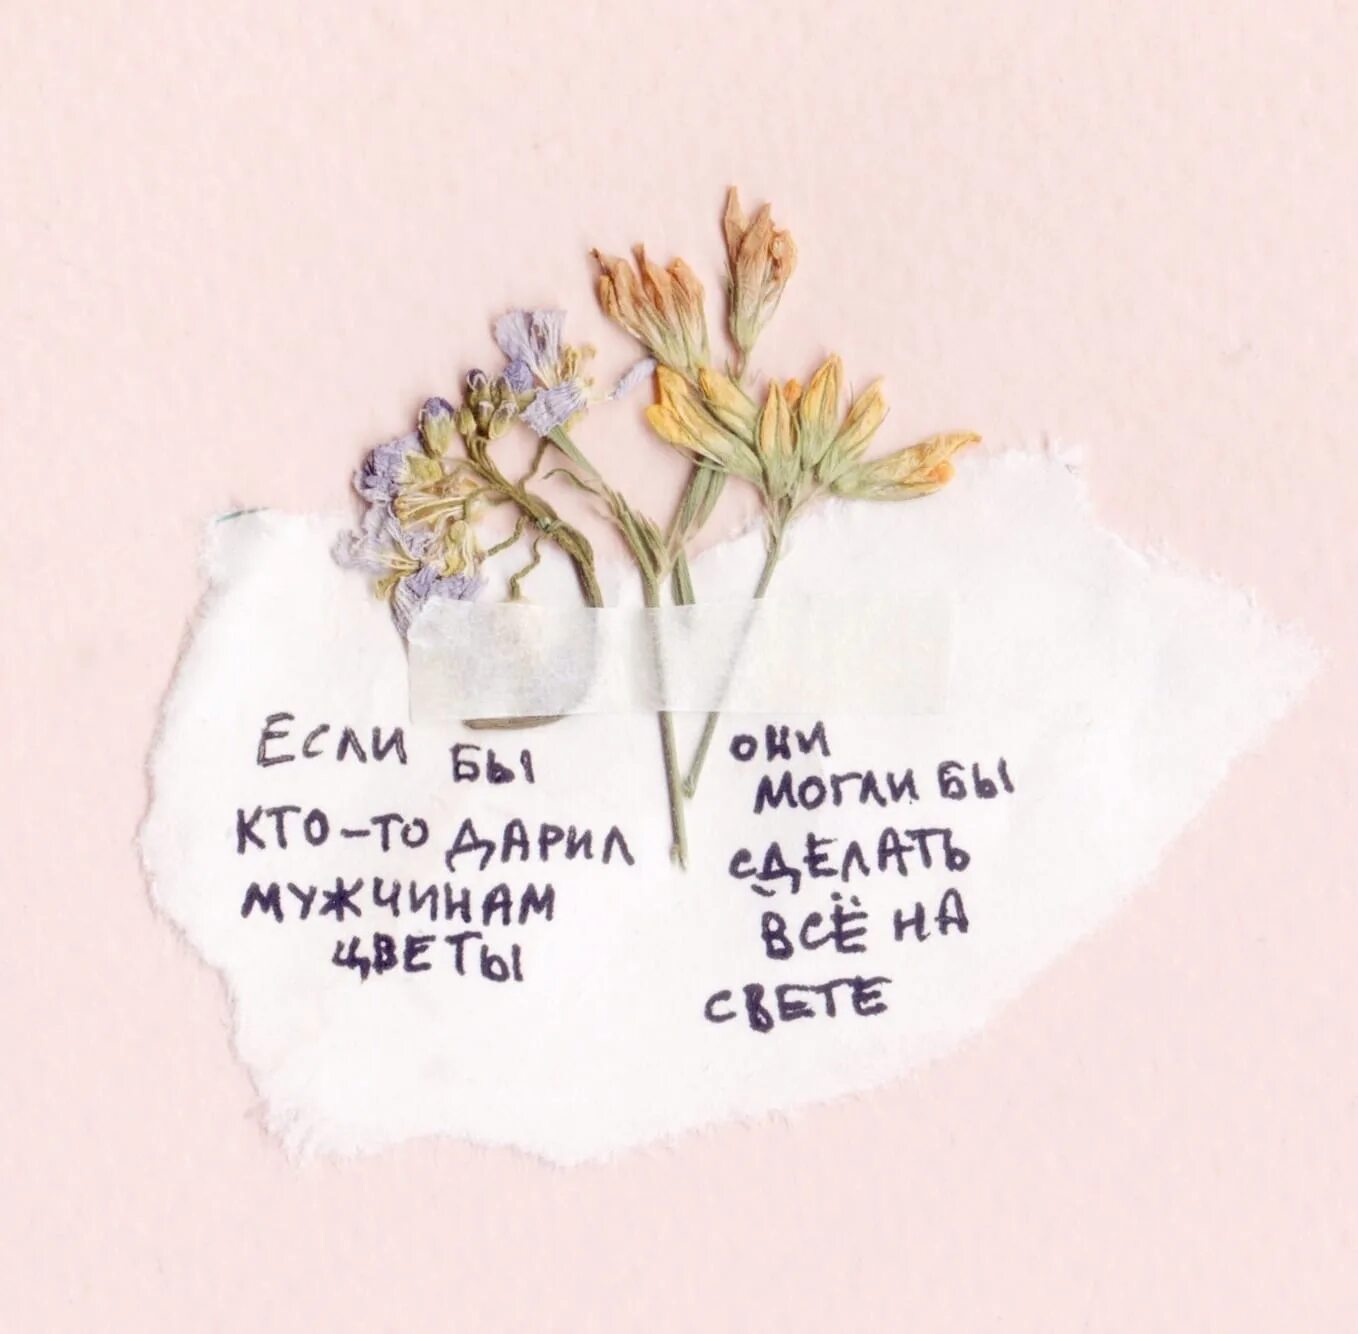 Если бы
кто-то дарил
мужчинам
цветы
они
могли бы
сделать
всё на
свете